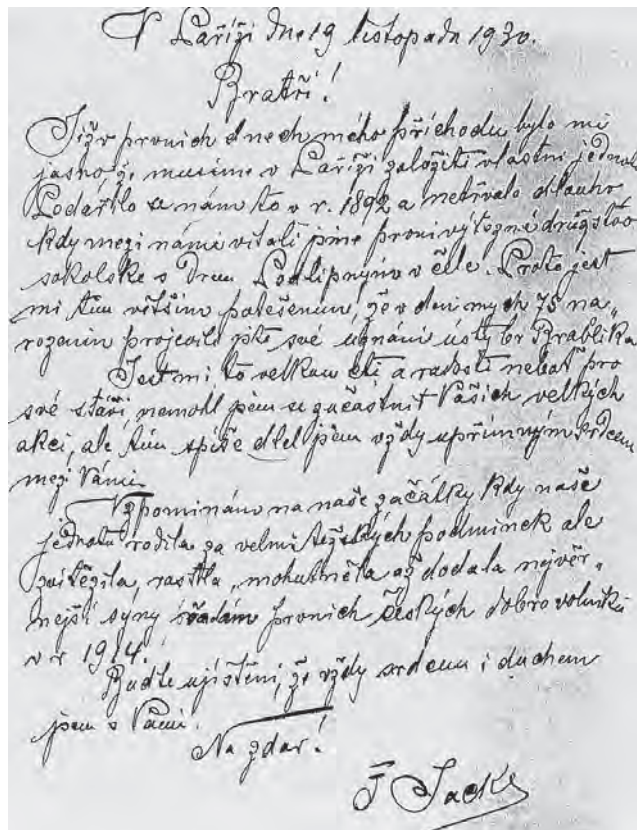 V Paříži dne 19 listopadu 1930.
Bratři!
Již v prvních dnech mého příchodu bylo mi
jasno, že musíme v Paříži založiti vlastní jednot
Podařilo se nám to v r. 1892 a netrvalo dlouho
kdy mezi námi vítali jsme první výtězné družstvo
sokolské s Drem Podlipným v čele. Proto jest
mi tím větším potěšením, že v den mých 75 na„
rozenin projevili jste své uznání ústy br Brablika
Jest mi to velkou ctí a radostí neboť pro
své stáří nemohl jsem se zúčastnit Vašich velkých
akcí, ale tím spíše dlel jsem vždy upřímným srdcem
mezi Vámi.
Vzpomínám na naše začátky kdy naše
jednota rodila za velmi těžkých podmínek ale
zvítězila, rostla, mohutněla až dodala nejvěr„
nejší syny řadám prvních českých dobrovolníků
v r 1914.
Buďte ujištěni, že vždy srdcem i duchem
jsem s Vámi.
Na zdar!